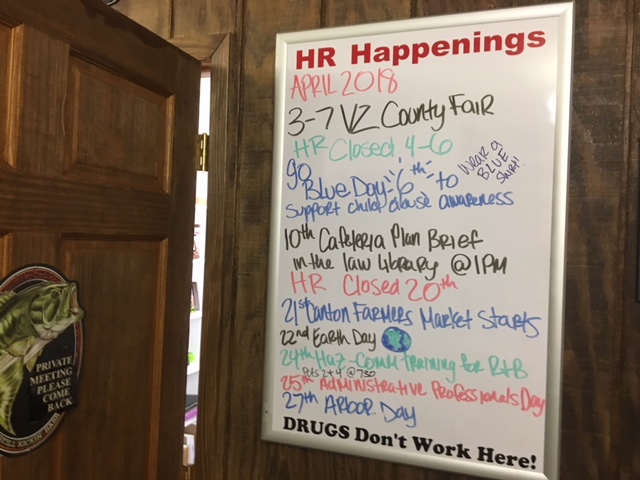 HR Happenings
APRIL 2018
3-7 VZ County Fair
HR Closed 4-6
go Blue Day "6th" to
Wear a
BLUE
Shirt!
support child abuse awareness
10th Cafeteria Plan Brief
in the law library @ 1PM
HR Closed 20th
21st Canton Farmers Market Starts
22nd Earth Day
24th Haz-Comm training for R+B
Pcts 2+4 @ 730
25th Administrative Professionals Day
27th ARBOR DAY
DRUGS Don't Work Here!
PRIVATE
MEETING
PLEASE
COME
BACK